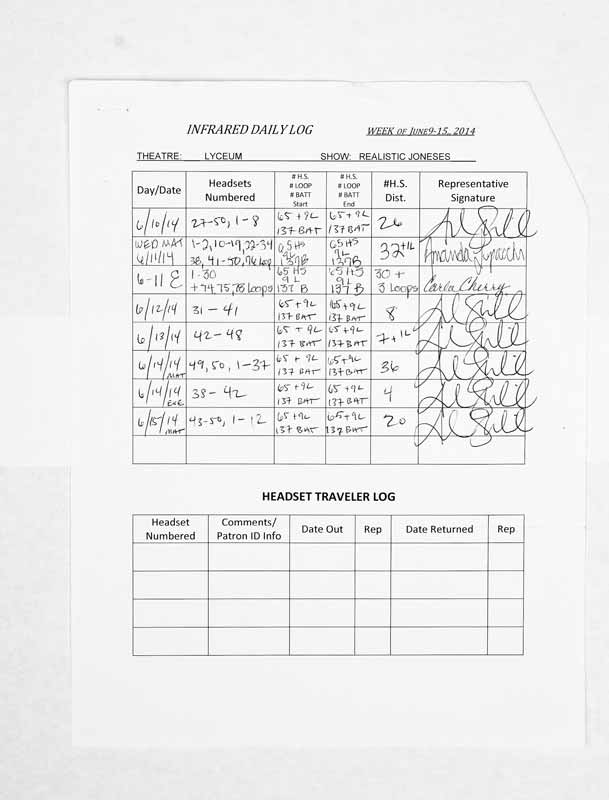 INFRARED DAILY LOG WEEK OF JUNE 9-15, 2014
THEATRE: LYCEUM SHOW: REALISTIC JONESES
Day/Date Headsets Numbered # H.S. # LOOP # BATT Start # H.S. # LOOP # BATT End #H.S. Dist. Representative Signature
6/10/14 27-50, 1-8 65+9L 137 BAT 65+9L 137 BAT 26
WED MAT 6/11/14 1-2, 10-19, 22-34 38, 41-50, 76 Loop 65HS 9L 137B 65HS 9L 137B 32+1L Amanda
6-11 E 1-30 +74,75,78 Loops 65 HS 9L 137 B 65 HS 9L 137 B 30 + 3 Loops Carla Cherry
6/12/14 31-41 65+9L 137 BAT 65+9L 137 BAT 8
6/13/14 42-48 65+9L 137 BAT 65+9L 137 BAT 7+1L
6/14/14 MAT 49, 50, 1-37 65+9L 137 BAT 65+9L 137 BAT 36
6/14/14 EVE 38-42 65+9L 137 BAT 65+9L 137 BAT 4
6/15/14 MAT 43-50, 1-12 65+9L 137 BAT 65+9L 137 BAT 20
HEADSET TRAVELER LOG
Headset Numbered Comments/ Patron ID Info Date Out Rep Date Returned Rep